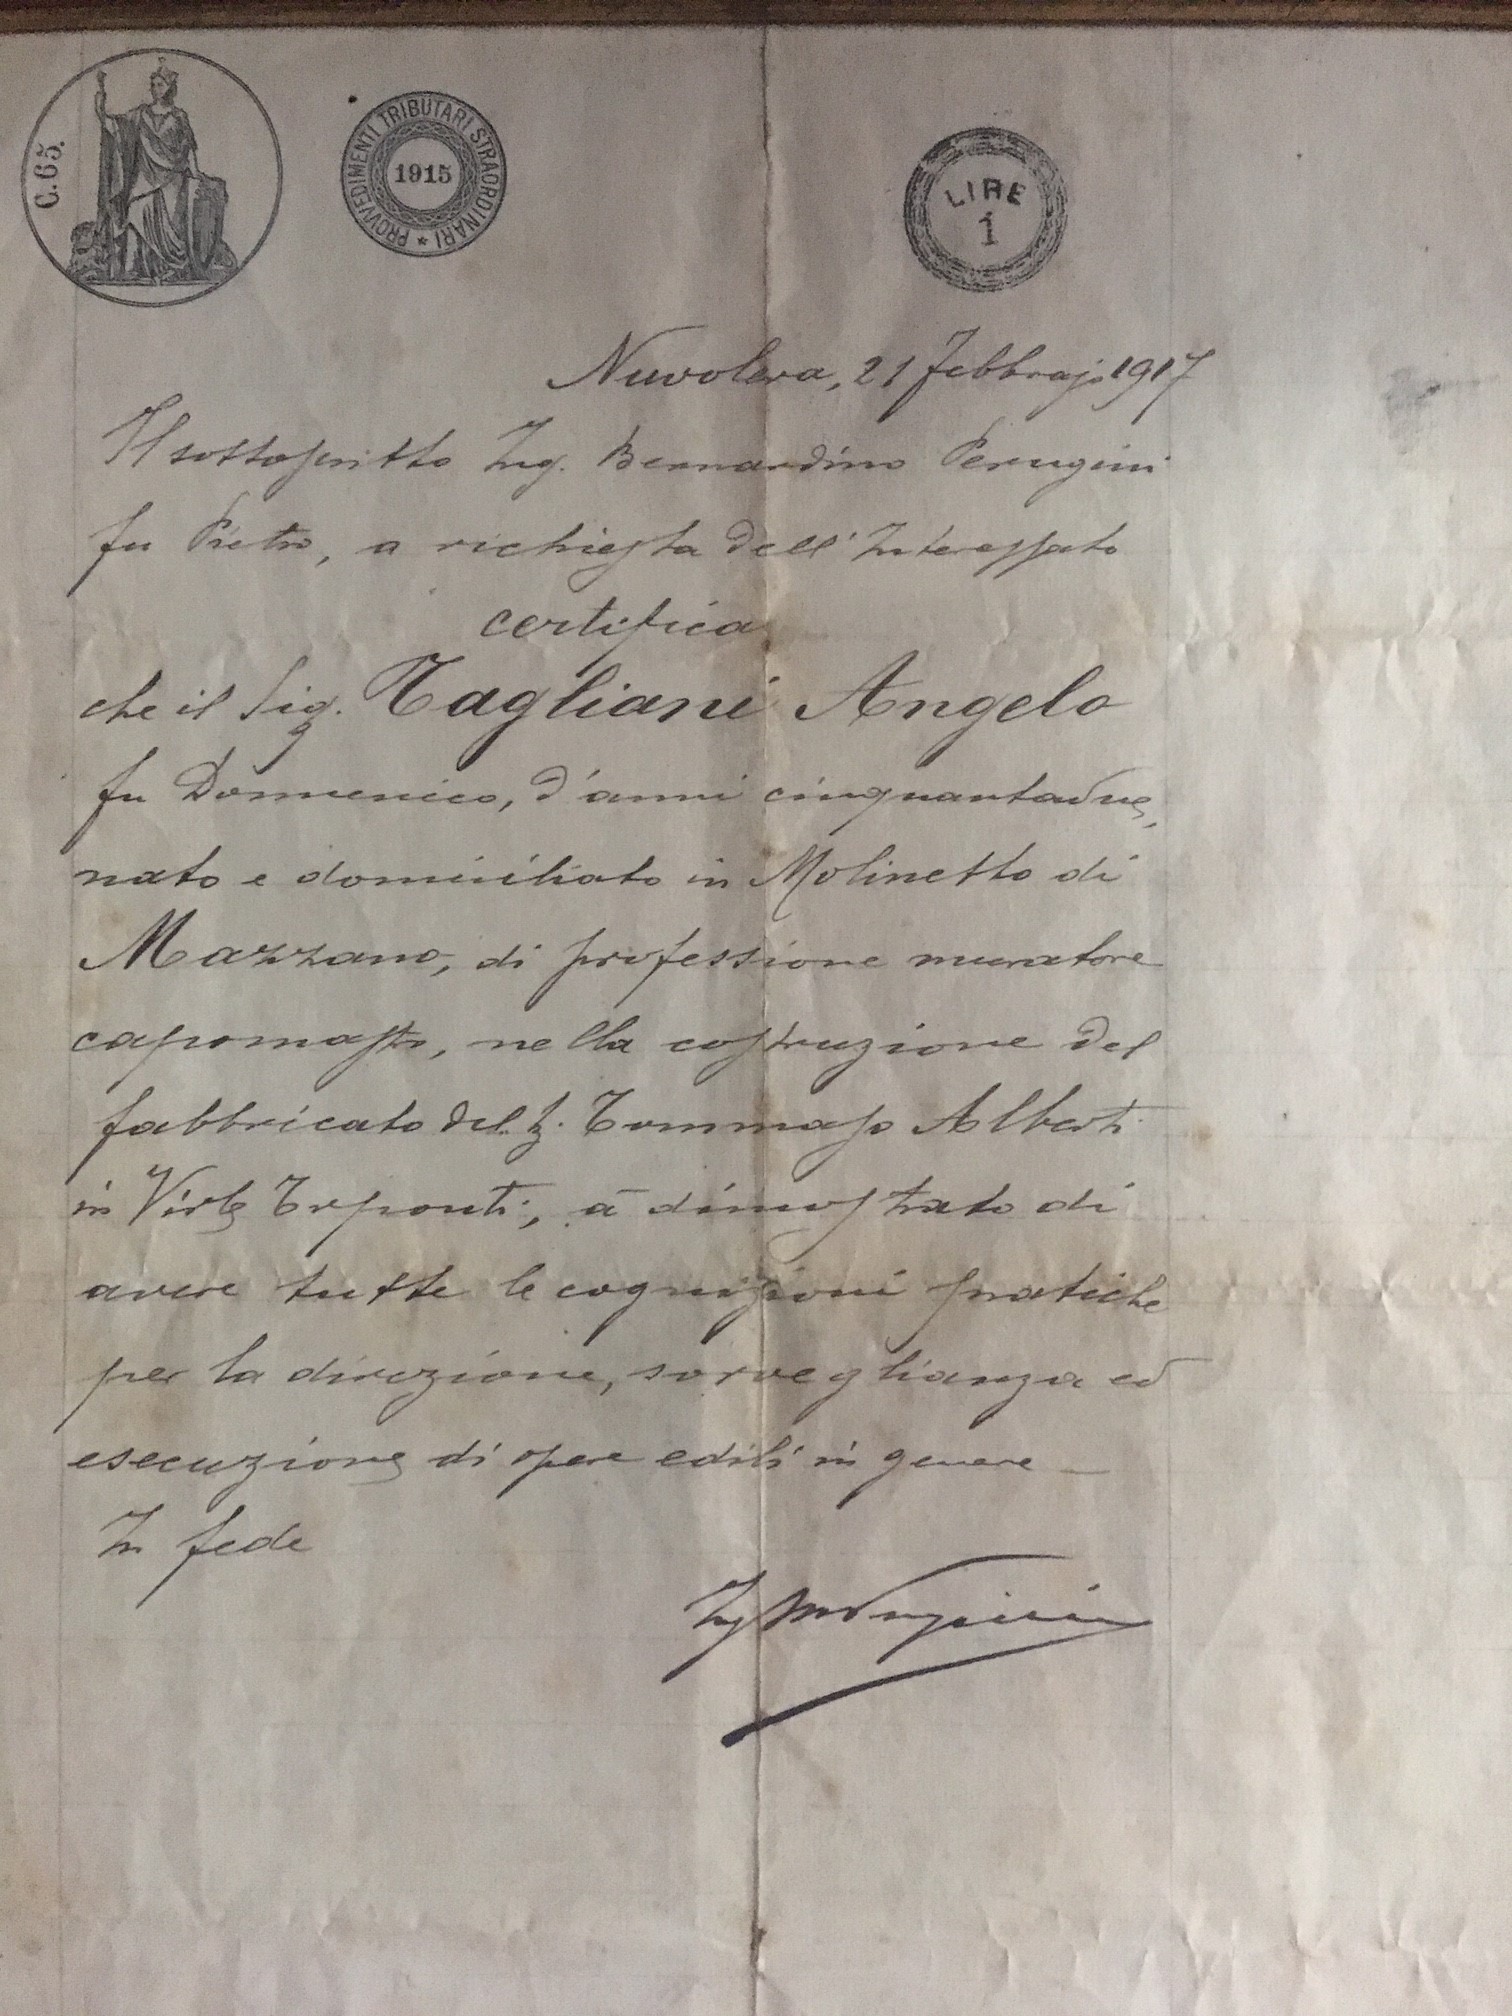 C. 65.
PROVVEDIMENTI TRIBUTARI STRAORDINARI
1915
LIRE
1
Nuvolera, 21 Febbrajo 1917
Il sottoscritto Ing. Bernardino Perugini
fu Pietro, a richiesta dell'Interessato
certifica
che il Sig. Tagliani Angelo
fu Domenico, d'anni cinquantadue,
nato e domiciliato in Molinetto di
Mazzano, di professione muratore
capomastro, nella costruzione del
fabbricato del Tommaso Alberti
in Virle Treponti, à dimostrato di
avere tutte le cognizioni pratiche
per la direzione, sorveglianza ed
esecuzione di opere edili in genere —
In fede
Ing Perugini